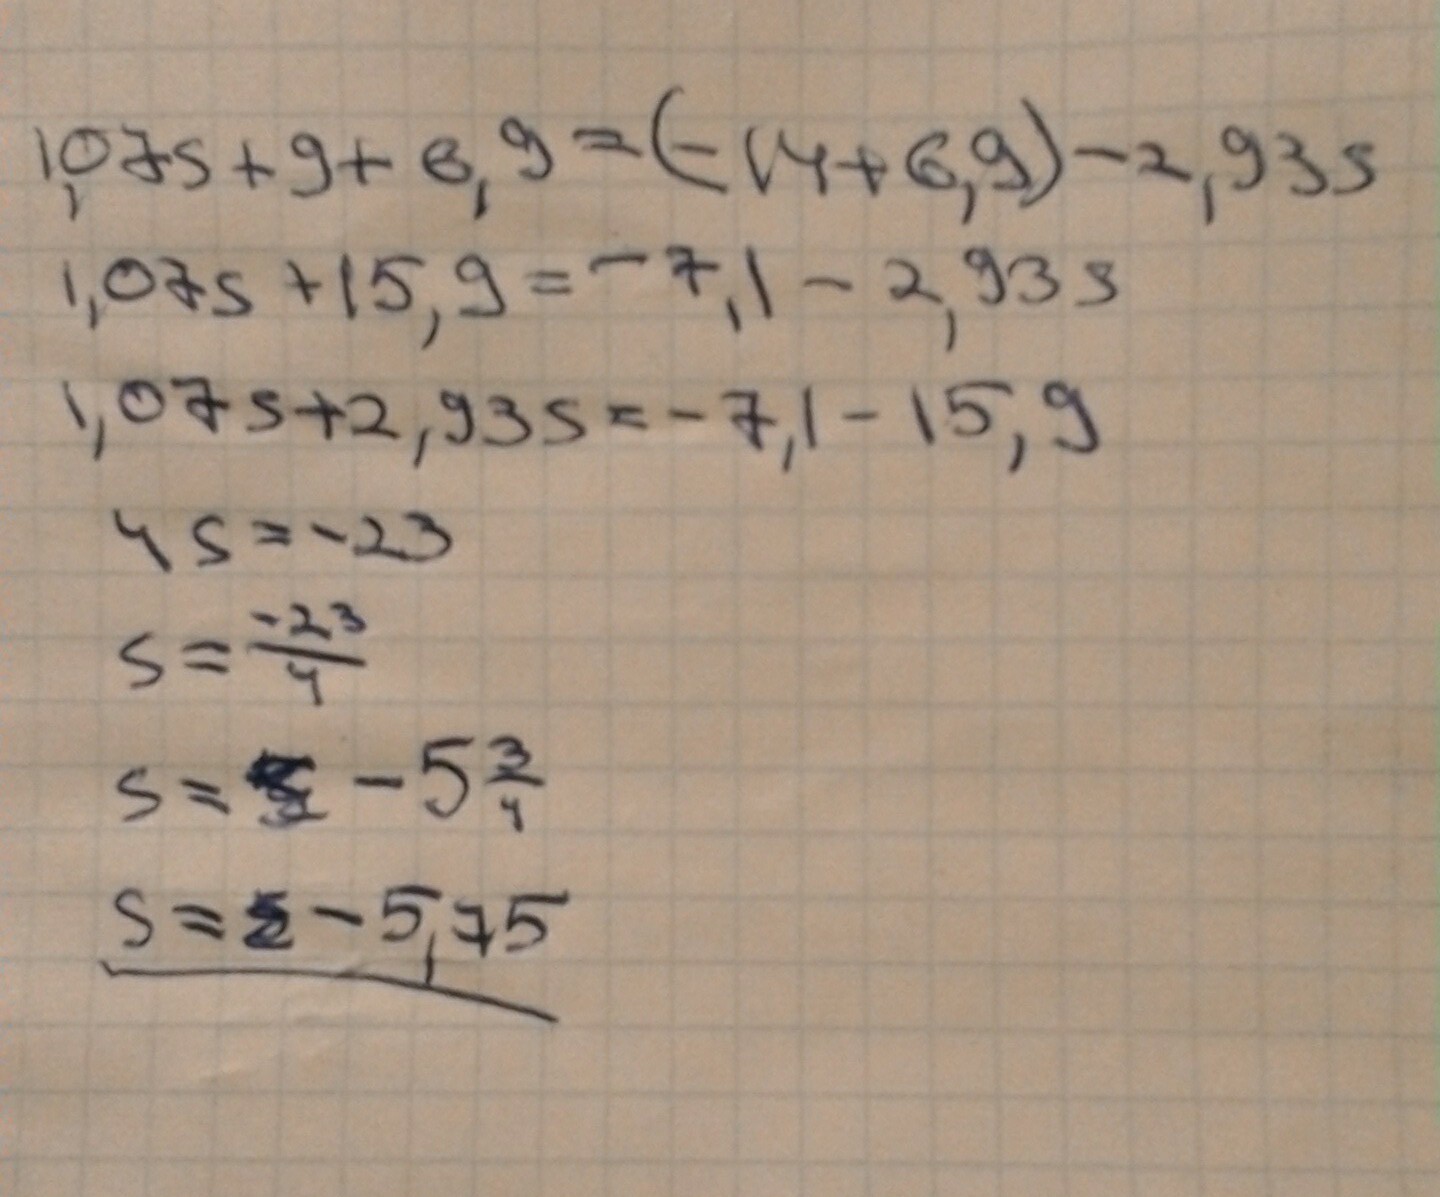 1,07s+9+6,9=(-14+6,9)-2,93s
1,07s+15,9=-7,1-2,93s
1,07s+2,93s=-7,1-15,9
4s=-23
s=\frac{-23}{4}
s=-5\frac{3}{4}
s=-5,75